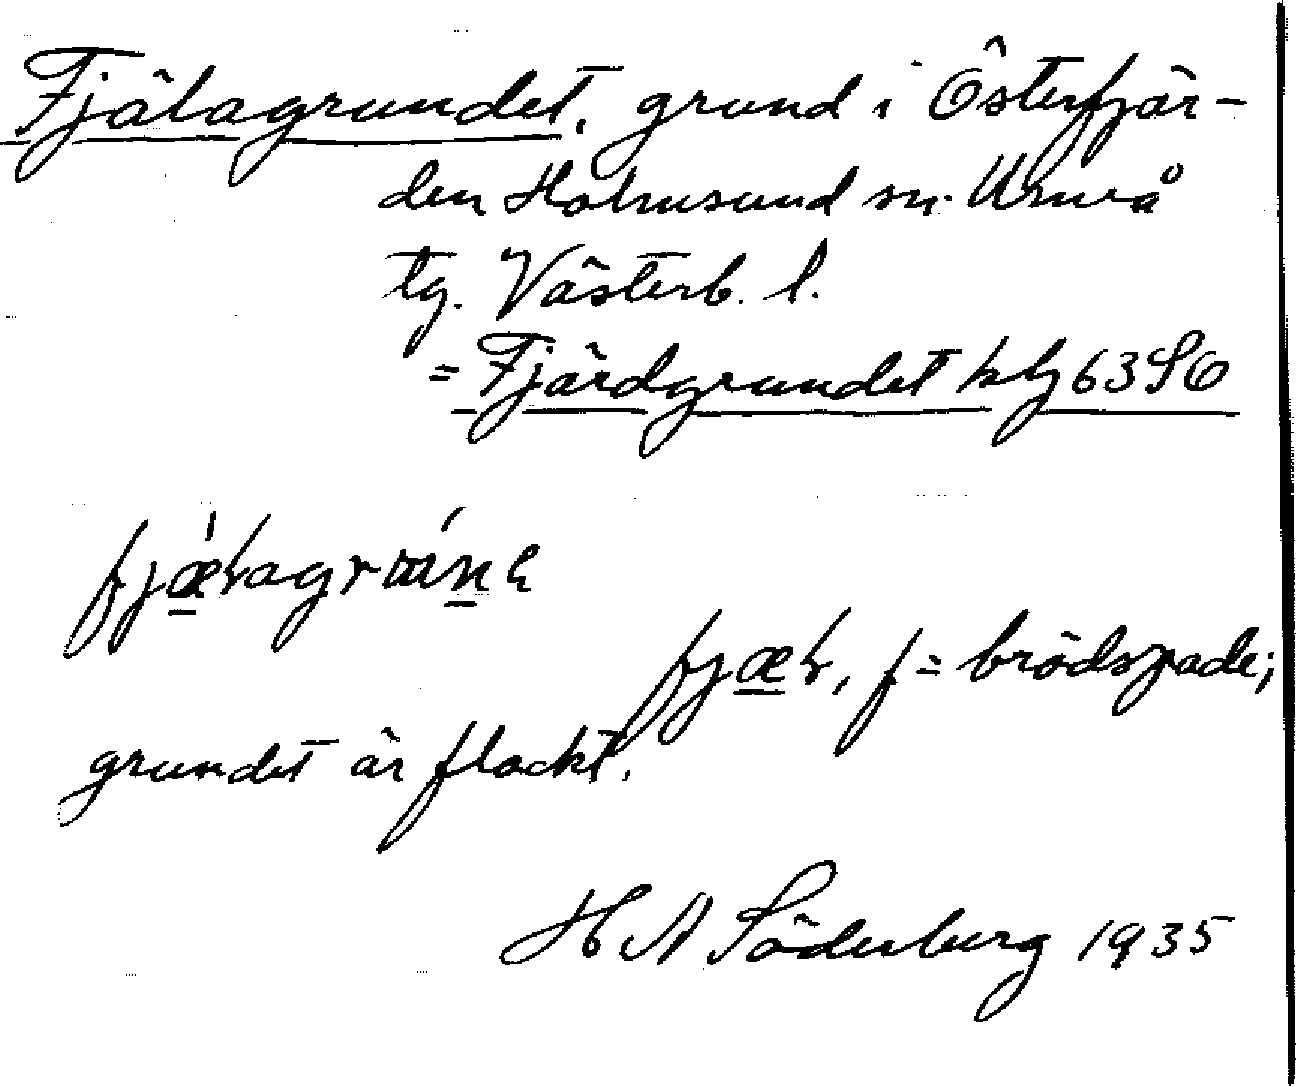 Fjälagrundet, grund i Österfjär-
den Holmsund sn. Umeå
tg. Västerb. l.
= Fjärdgrundet kbl 63 SO
fjæ̲ɫagrɯn̲
fjæ̲ɫ, f = brödspade;
grundet är flackt.
H A Söderberg 1935